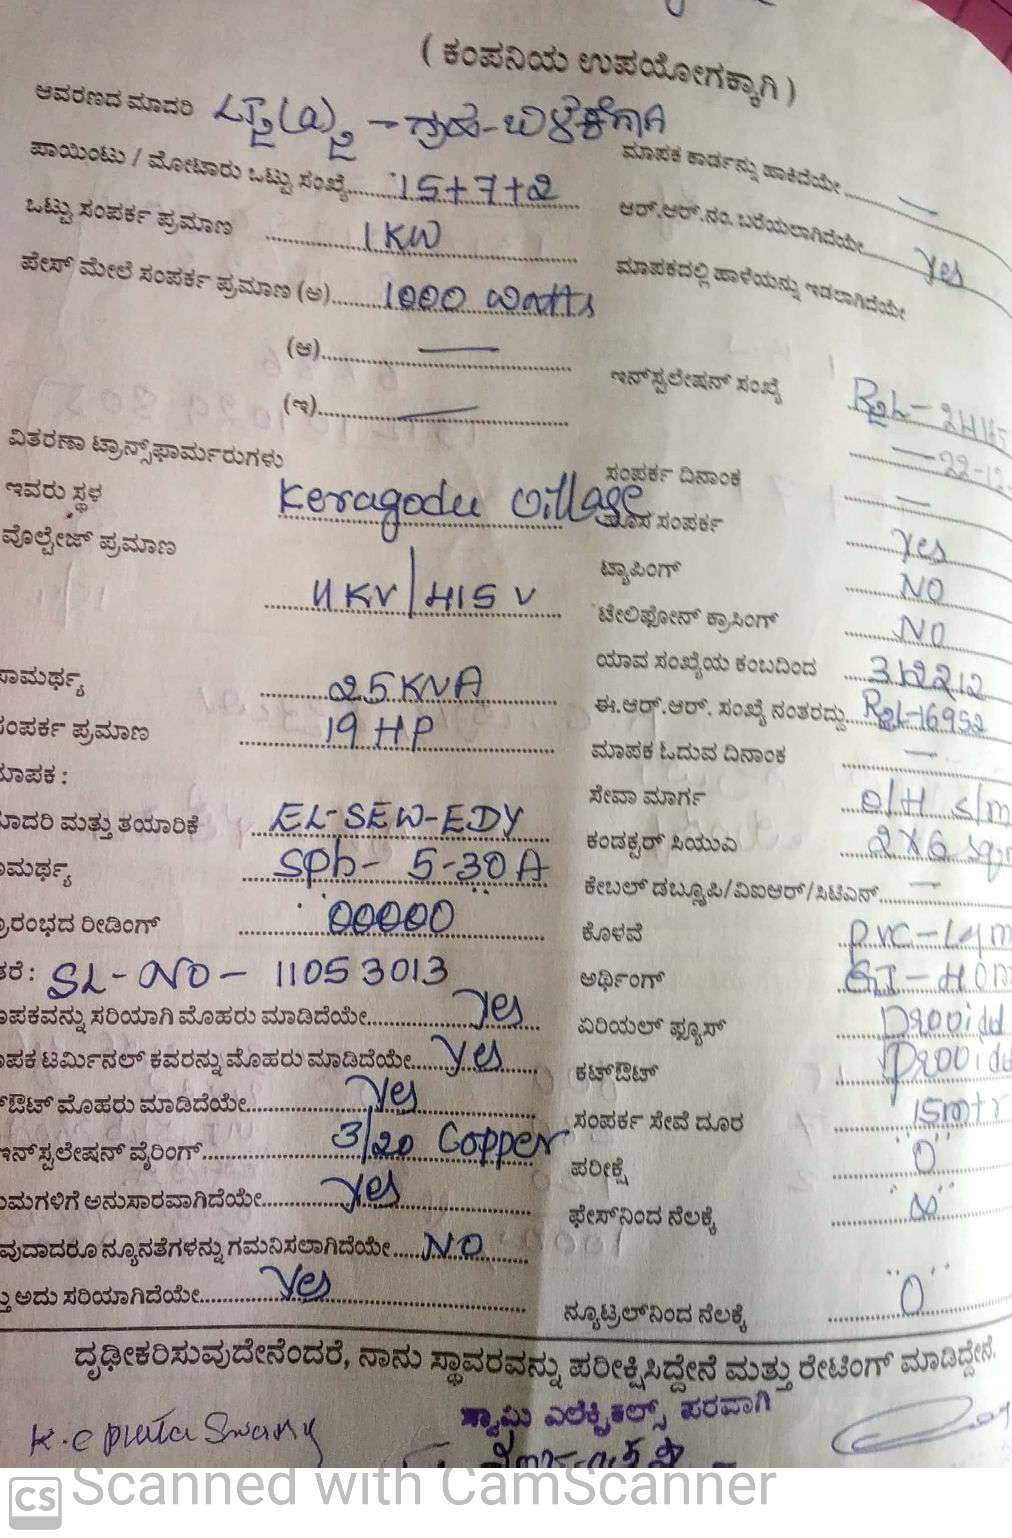 ( ಕಂಪನಿಯ ಉಪಯೋಗಕ್ಕಾಗಿ )
ಆವರಣದ ಮಾದರಿ
ಪಾಯಿಂಟು / ಮೋಟಾರು ಒಟ್ಟು ಸಂಖ್ಯೆ 15+7+2
ಒಟ್ಟು ಸಂಪರ್ಕ ಪ್ರಮಾಣ 1 KW
ಪೇಸ್ ಮೇಲೆ ಸಂಪರ್ಕ ಪ್ರಮಾಣ (ಅ) 1000 watts
(ಆ) —
(ಇ) —
ವಿತರಣಾ ಟ್ರಾನ್ಸ್‌ಫಾರ್ಮರುಗಳು
ಇವರು ಸ್ಥಳ Keragodu village
ವೊಲ್ಟೇಜ್ ಪ್ರಮಾಣ
11 KV / 415 V
ಸಾಮರ್ಥ್ಯ 25 KVA
ಸಂಪರ್ಕ ಪ್ರಮಾಣ 19 HP
ಮಾಪಕ :
ಮಾದರಿ ಮತ್ತು ತಯಾರಿಕೆ EL-SEW-EDY
ಸಾಮರ್ಥ್ಯ SPh- 5-30 A
ಪ್ರಾರಂಭದ ರೀಡಿಂಗ್ "00000"
ಇತರೆ : SL-NO- 11053013
ಮಾಪಕವನ್ನು ಸರಿಯಾಗಿ ಮೊಹರು ಮಾಡಿದೆಯೇ Yes
ಮಾಪಕ ಟರ್ಮಿನಲ್ ಕವರನ್ನು ಮೊಹರು ಮಾಡಿದೆಯೇ Yes
ಔಟ್ ಮೊಹರು ಮಾಡಿದೆಯೇ Yes
ಇನ್‌ಸ್ಟಲೇಷನ್ ವೈರಿಂಗ್ 3/20 Copper
ನಿಯಮಗಳಿಗೆ ಅನುಸಾರವಾಗಿದೆಯೇ Yes
ಯಾವುದಾದರೂ ನ್ಯೂನತೆಗಳನ್ನು ಗಮನಿಸಲಾಗಿದೆಯೇ NO
ಅದು ಸರಿಯಾಗಿದೆಯೇ Yes
ಮಾಪಕ ಕಾರ್ಡನ್ನು ಹಾಕಿದೆಯೇ —
ಆರ್.ಆರ್.ನಂ. ಬರೆಯಲಾಗಿದೆಯೇ Yes
ಮಾಪಕದಲ್ಲಿ ಹಾಳೆಯನ್ನು ಇಡಲಾಗಿದೆಯೇ
ಇನ್‌ಸ್ಟಲೇಷನ್ ಸಂಖ್ಯೆ
ಸಂಪರ್ಕ ದಿನಾಂಕ
ಹೊಸ ಸಂಪರ್ಕ Yes
ಟ್ಯಾಪಿಂಗ್ NO
ಟೇಲಿಫೋನ್ ಕ್ರಾಸಿಂಗ್ NO
ಯಾವ ಸಂಖ್ಯೆಯ ಕಂಬದಿಂದ
ಈ.ಆರ್.ಆರ್. ಸಂಖ್ಯೆ ನಂತರದ್ದು
ಮಾಪಕ ಓದುವ ದಿನಾಂಕ —
ಸೇವಾ ಮಾರ್ಗ O/H
ಕಂಡಕ್ಟರ್ ಸಿಯುಎ 2X6
ಕೇಬಲ್ ಡಬ್ಲ್ಯೂಪಿ/ವಿಐಆರ್/ಸಿಟಿಎಸ್ —
ಕೊಳವೆ PVC
ಅರ್ಥಿಂಗ್ GI
ಏರಿಯಲ್ ಫ್ಯೂಸ್
ಕಟ್‌ಔಟ್
ಸಂಪರ್ಕ ಸೇವೆ ದೂರ 15mtr
ಪರೀಕ್ಷೆ "0"
ಫೇಸ್‌ನಿಂದ ನೆಲಕ್ಕೆ
ನ್ಯೂಟ್ರಲ್‌ನಿಂದ ನೆಲಕ್ಕೆ "0"
ದೃಢೀಕರಿಸುವುದೇನೆಂದರೆ, ನಾನು ಸ್ಥಾವರವನ್ನು ಪರೀಕ್ಷಿಸಿದ್ದೇನೆ ಮತ್ತು ರೇಟಿಂಗ್ ಮಾಡಿದ್ದೇನೆ.
ಸ್ವಾಮಿ ಎಲೆಕ್ಟ್ರಿಕಲ್ಸ್ ಪರವಾಗಿ
CS Scanned with CamScanner